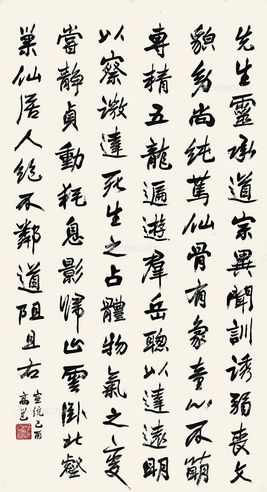 先生靈承道宗異聞訓誘弱喪文
貌多尚純篤仙骨有象意心不萌
專精五龍遍遊群岳聰以達遠明
以察微達死生之占體物氣之變
嘗靜貞動耗息影歸山雲臥北壑
巢仙居人絕不鄰道阻且右
宣統己酉
高邕